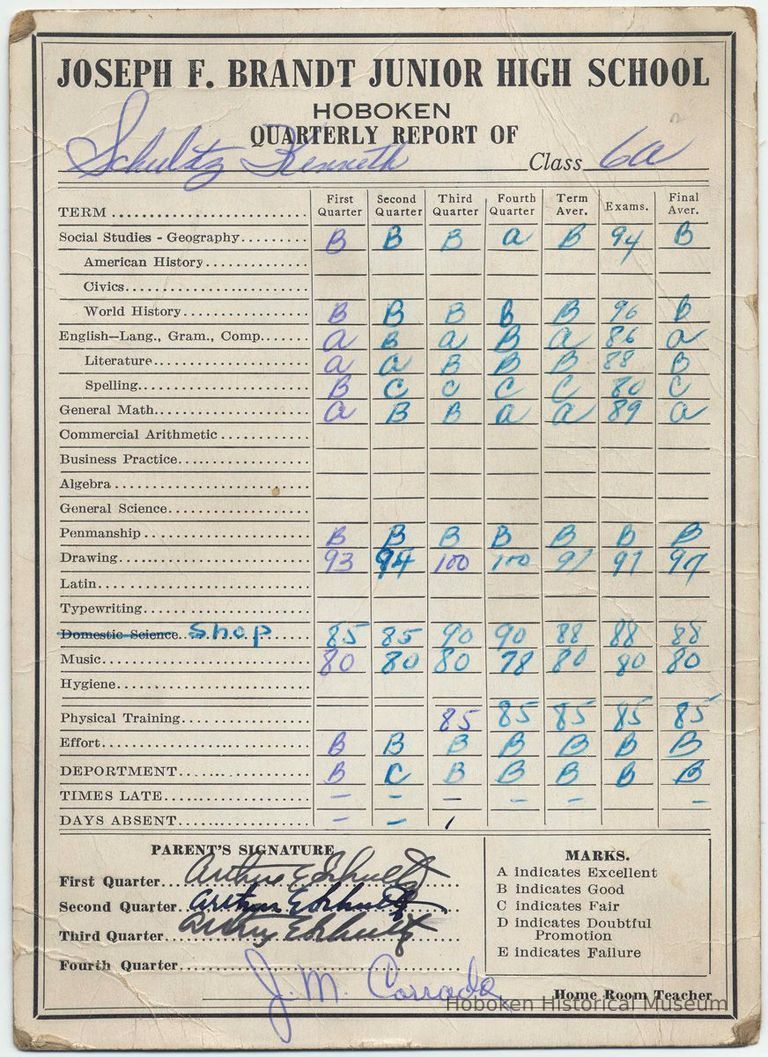 JOSEPH F. BRANDT JUNIOR HIGH SCHOOL
HOBOKEN
QUARTERLY REPORT OF
Schultz Kenneth Class 6a
TERM First Quarter Second Quarter Third Quarter Fourth Quarter Term Aver. Exams. Final Aver.
Social Studies - Geography B B B a B 94 B
American History
Civics
World History B B B B B 96 B
English—Lang., Gram., Comp. a B a B a 86 a
Literature a a B B B 88 B
Spelling B C C C C 80 C
General Math. a B B a a 89 a
Commercial Arithmetic
Business Practice
Algebra
General Science
Penmanship B B B B B B B
Drawing 93 94 100 100 97 97 97
Latin
Typewriting
Domestic Science Shop 85 85 90 90 88 88 88
Music 80 80 80 78 80 80 80
Hygiene
Physical Training 85 85 85 85 85
Effort B B B B B B B
DEPORTMENT B C B B B B B
TIMES LATE – – – – – –
DAYS ABSENT – – 1
PARENT'S SIGNATURE
First Quarter Arthur E Schultz
Second Quarter Arthur E Schultz
Third Quarter Arthur E Schultz
Fourth Quarter
J. M. Home Room Teacher
MARKS.
A indicates Excellent
B indicates Good
C indicates Fair
D indicates Doubtful
Promotion
E indicates Failure
Hoboken Historical Museum